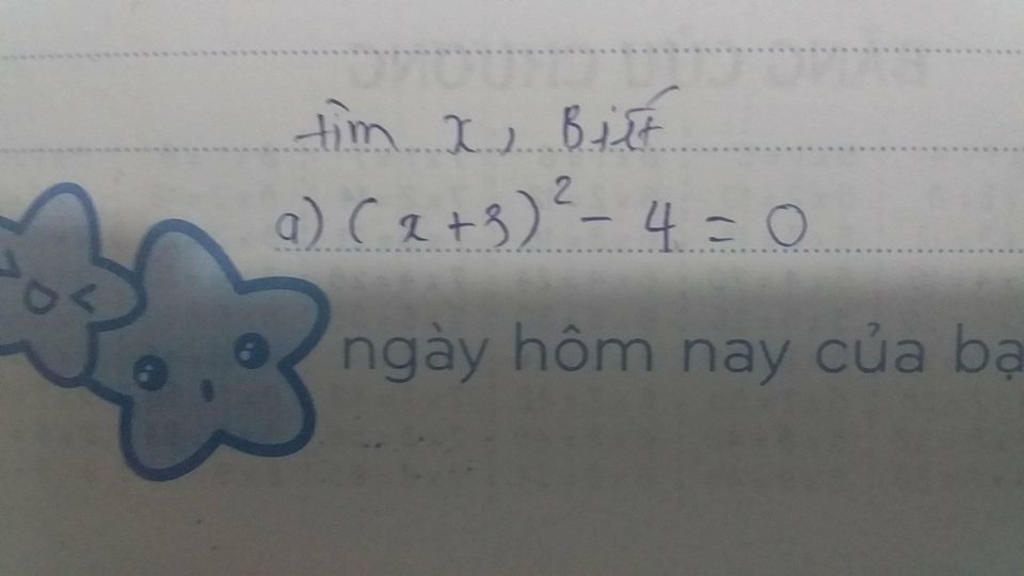 tìm x, Biết
a) (x+3)² - 4 = 0
ngày hôm nay của bạ